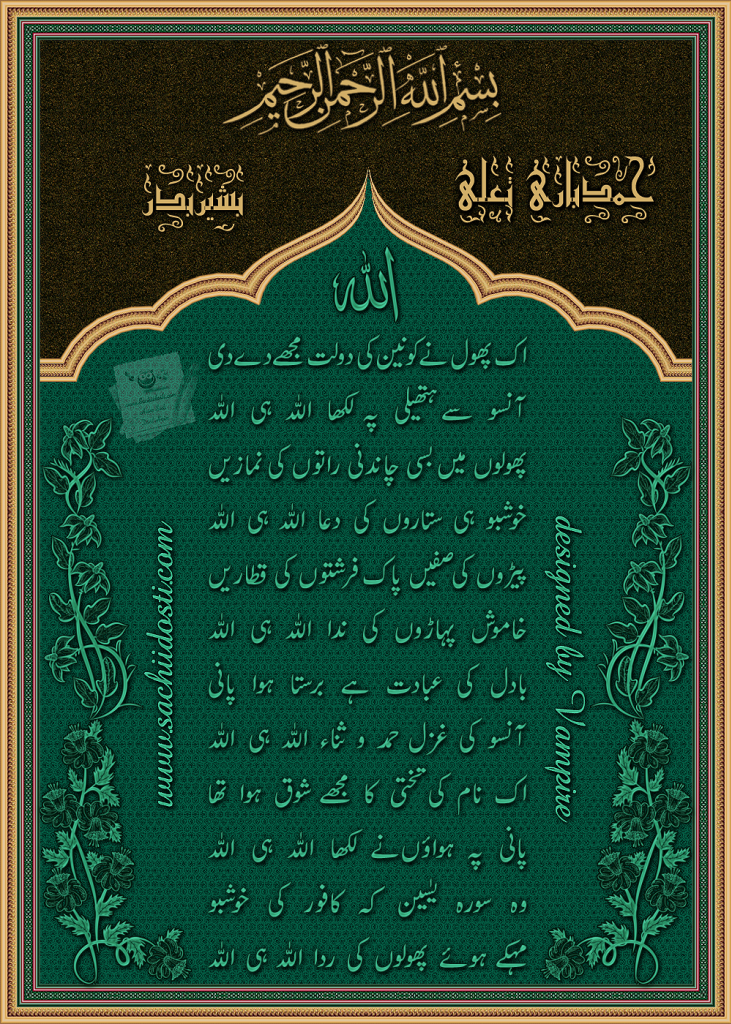 بِسْمِ اللهِ الرَّحْمٰنِ الرَّحِيْمِ
حمد باری تعلی
بشیر بدر
الله
اک پھول نے کونین کی دولت مجھے دے دی
آنسو سے ہتھیلی پہ لکھا اللہ ہی اللہ
پھولوں میں بسی چاندنی راتوں کی نمازیں
خوشبو ہی ستاروں کی دعا اللہ ہی اللہ
پیڑوں کی صفیں پاک فرشتوں کی قطاریں
خاموش پہاڑوں کی ندا اللہ ہی اللہ
بادل کی عبادت ہے برستا ہوا پانی
آنسو کی غزل حمد و ثناء اللہ ہی اللہ
اک نام کی تختی کا مجھے شوق ہوا تھا
پانی پہ ہواؤں نے لکھا اللہ ہی اللہ
وہ سورہ یٰسین کہ کافور کی خوشبو
مہکے ہوئے پھولوں کی ردا اللہ ہی اللہ
www.sachiidosti.com
designed by Vampire